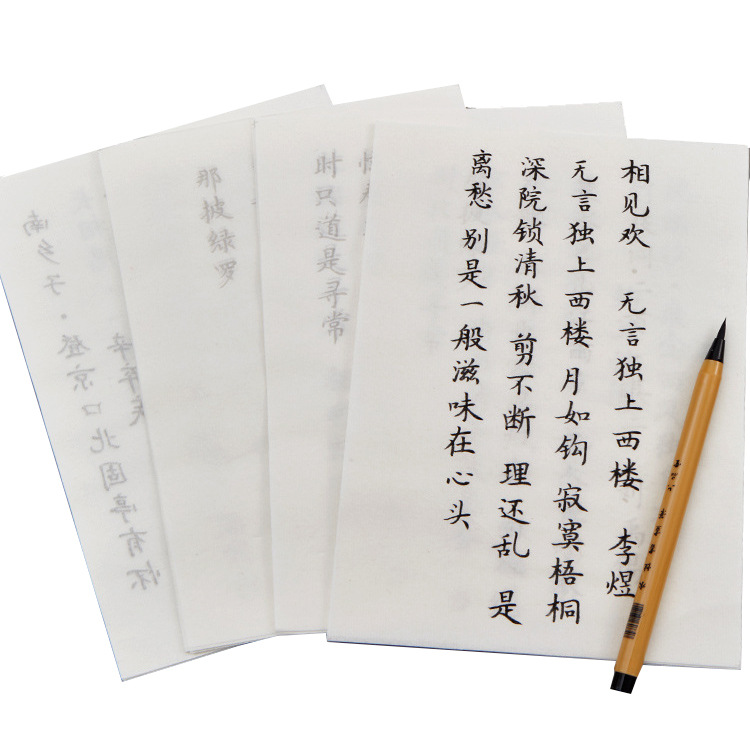 相见欢·无言独上西楼 李煜
无言独上西楼 月如钩 寂寞梧桐
深院锁清秋 剪不断 理还乱 是
离愁 别是一般滋味在心头
时只道是寻常
那披绿罗
南乡子·登京口北固亭有怀
辛弃疾